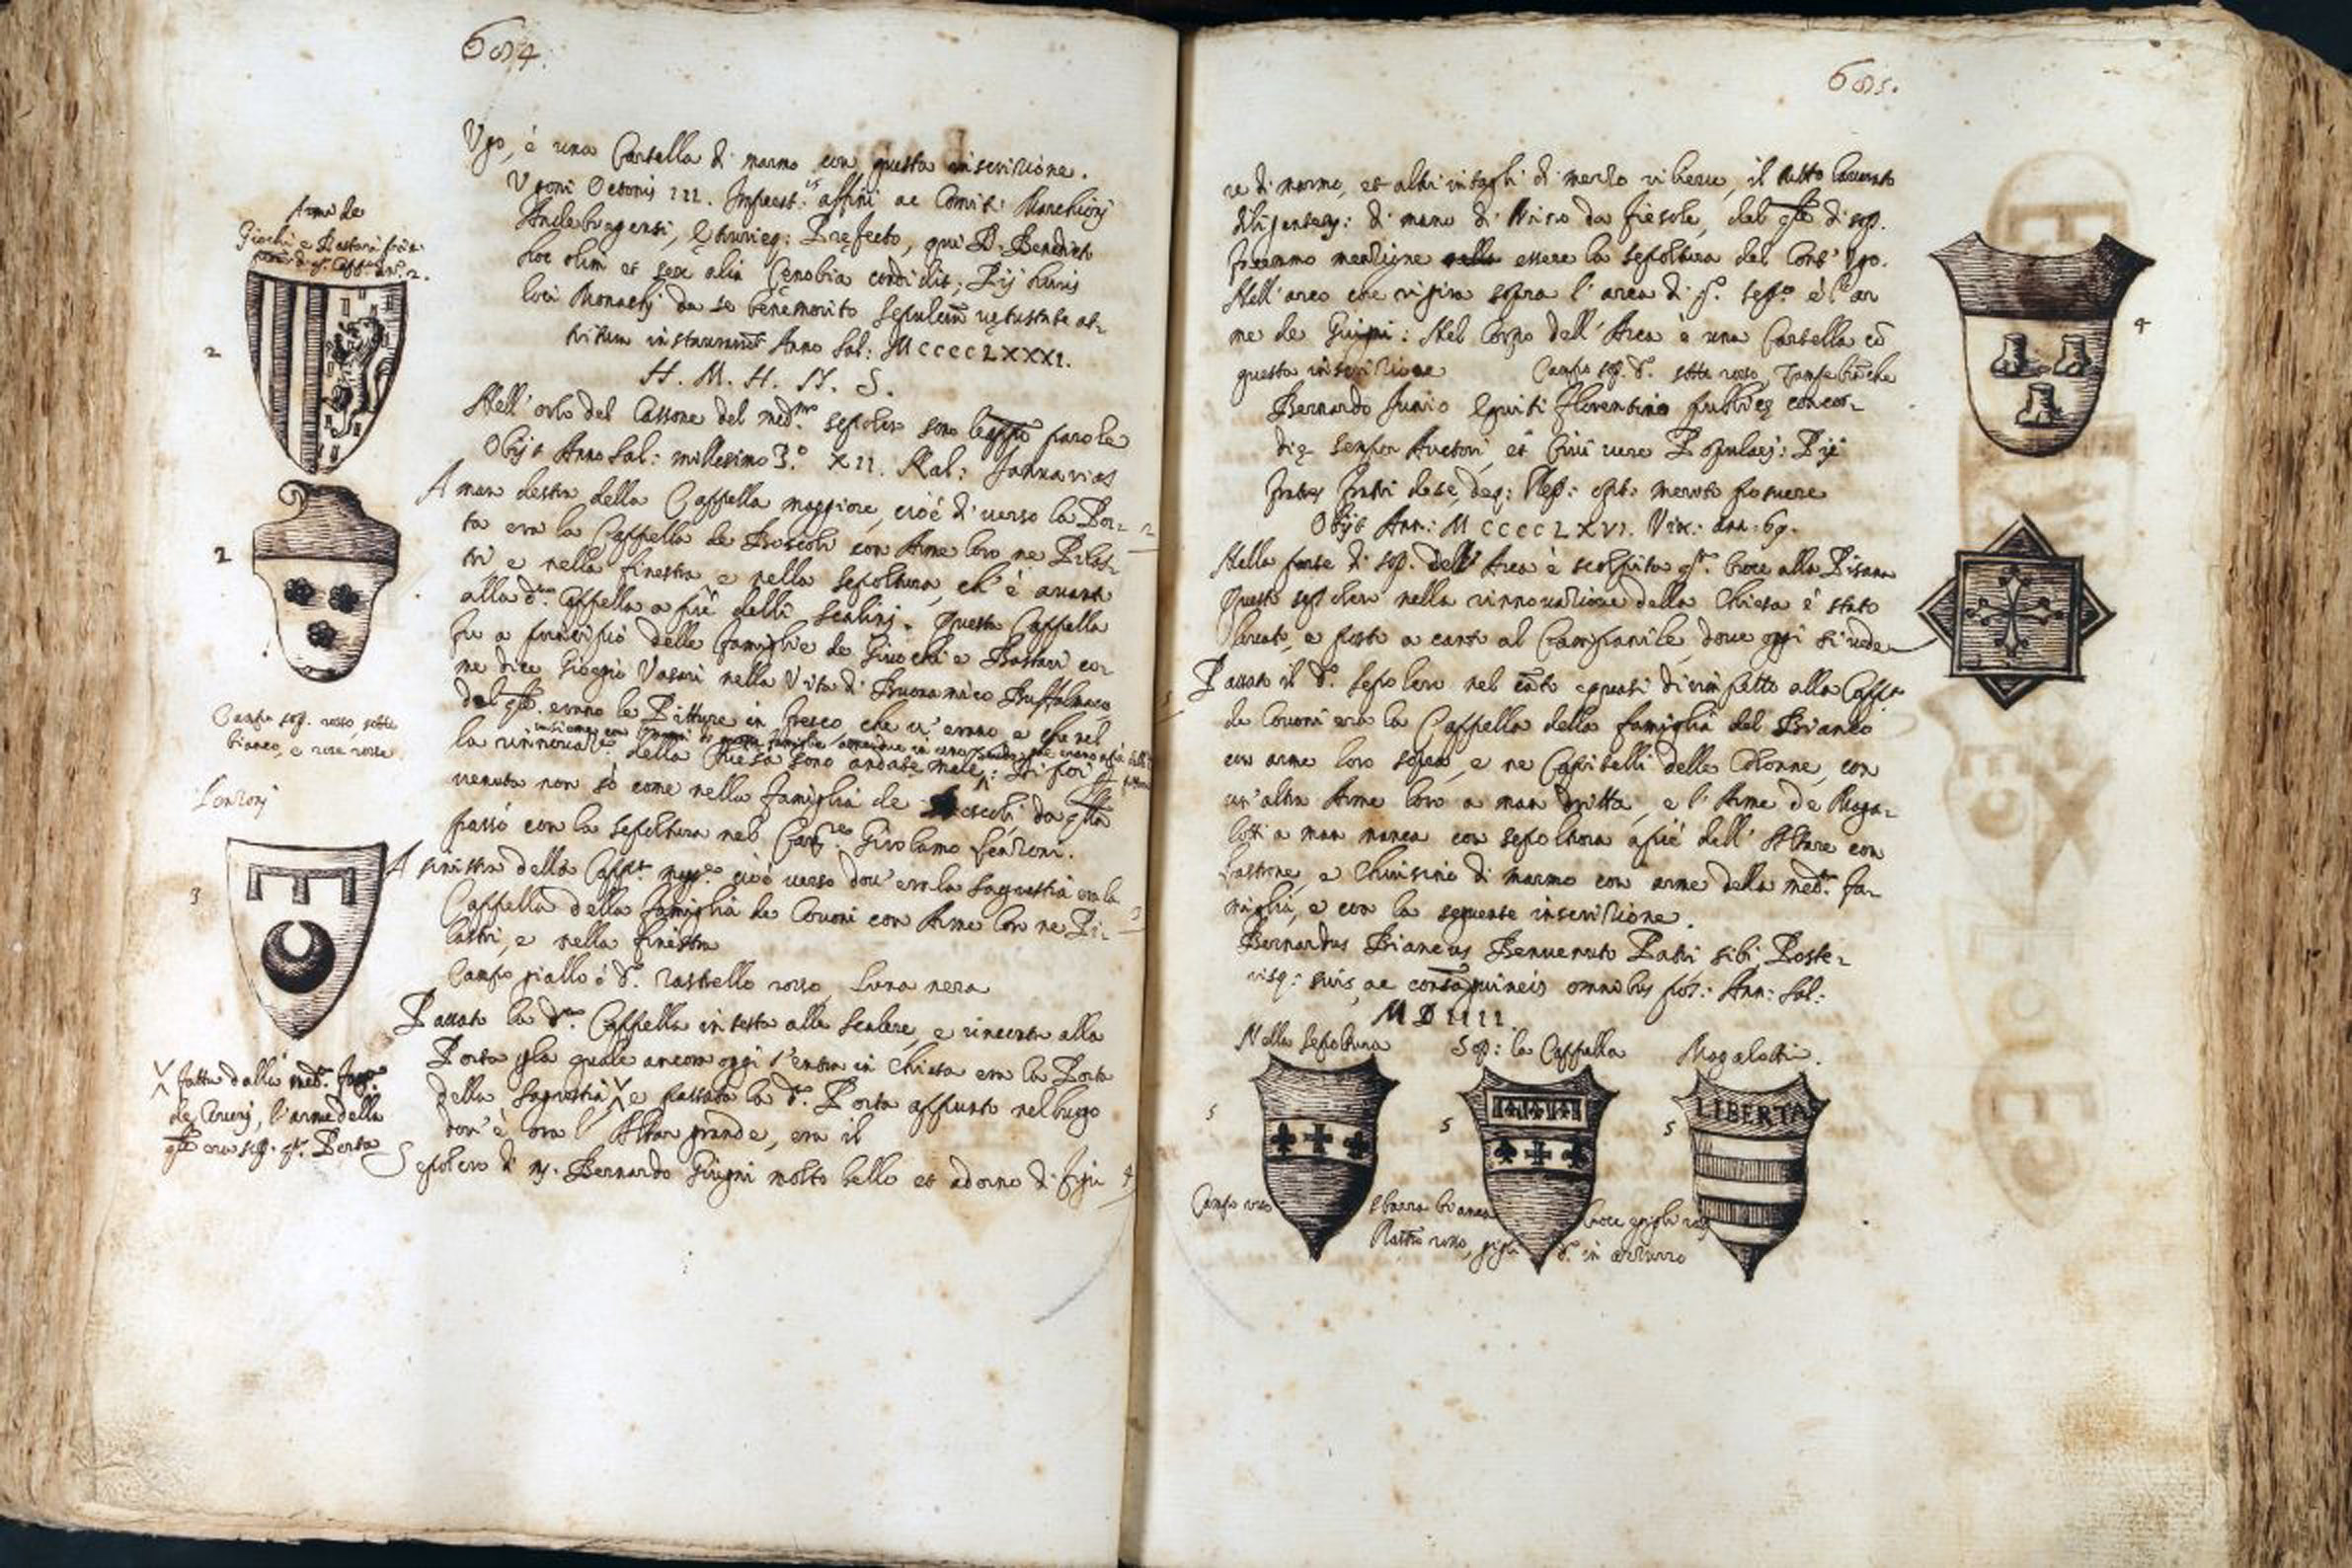 684.
Ugo, è una Cartella di marmo con questa inscrizione.
Ugoni Ottonis III. Imperat:is affini ac Comiti Marchioni
Andeburgensi, Etrurieq: Prefecto, qui D. Benedicto
hoc olim et sex alia Cenobia condidit; Pij huius
loci Monachj da se benemerito sepulcrũ vętustate at-
tritum instaurarũt Anno Sal: MCCCCLXXXI.
H. M. H. N. S.
Nell'orlo del Cassone del med.mo sepolcro sono parole
Obijt Anno Sal: millesimo P.o XII. Kal: Januarias
A man destra della Cappella maggiore, cioè di verso la Por-
ta era la Cappella de Boscoli con Arme loro ne Pilas-
tri e nella finestra, e nella sepoltura, ch'è avanti
alla d.ta Cappella a piè delli scalinj. questa Cappella
fu a principio delle famiglie de Giuochi e Bastari co-
me dice Giorgio Vasari nella Vita di Buonamico Buffalmaco
dal qle. erano le Pitture in fresco che v'erano e che nel
la rinnovaz.e della Chiesa sono andate male:
venuta non sò come nella famiglia de Boscoli da qlla
passò con la sepoltura nel Girolamo Lenzoni.
A sinistra della Capp.a magg.re cioè verso dov'era la sagrestia era la
Cappella della famiglia de Covoni con Arme loro ne Pi-
lastri, e nella finestra
Campo giallo è d.o rastrello rosso, Luna nera
Passato la d.ta Cappella in testa alle scalere, e rincontro alla
Porta p la quale ancora oggi s'entra in Chiesa era la Porta
della sagrestia e passata la d.a Porta appunto nel luogo
dov'è ora l'Altar grande, era il
Sepolcro di M. Bernardo Giugni molto bello et adorno di figu
Arme de
Giochi e Bastari
2
2
Campo sop. rosso, sotto
bianco, e rose rosse
Lenzoni
3
fatta dalla med.a fam.a
de Covonj, l'arme della
qle era sop. q.a Porta
2
3
4
685.
re di marmo, et altri intagli di mezzo rilievo, il tutto lavorato
diligentem: di mano di Mino da fiesole, dal qle di sop.
facemmo menzione essere la sepoltura del Conte Ugo.
Nell'arco che rigira sopra l'arca di q.o sep.o è l'ar
me de Giugni: Nel Corpo dell'Arca è una Cartella cō
questa inscrizione
Campo sop. d. sotto rosso, Zampe bianche
Bernardo Junio Equiti florentino publicę concor-
dię semper Auctori, et Civi vere Popularj: Pij
fratres fratri de se, deq: Rep: opt: merito posuere
Obijt Ann: MCCCCLXVI. Vix: ann. 69.
Nella parte di sop. dell'Arca è scolpita q.a croce alla Pisana
questo sepolcro nella rinnovazione della Chiesa è stato
levato, e posto a canto al Campanile, dove oggi si vede
Passato il d.o sepolcro nel cãto e quasi dirimpetto alla Capp.a
de Covoni era la Cappella della famiglia del Bianco
con arme loro sopra, e ne Capitelli delle Colonne, con
un'altra Arme loro a man dritta, e l'Arme de Maga-
lotti a man manca con sepoltura a piè dell'Altare con
lastrone, e Chiusino di marmo con arme della med.a fa-
miglia, e con la seguente inscrizione.
Bernardus Biancus Benvenuto Patri sibi, Poste-
risq: suis, ac consãguineis omnibus pos.: Ann: Sal:
MDIIII.
4
5
Nella sepoltura
Sop: la Cappella
Magalotti.
5
5
5
LIBERTA
Campo rosso
Sbarra bianca
Rastro rosso, gigli
Croce e gigli rossi
d. in azzurro